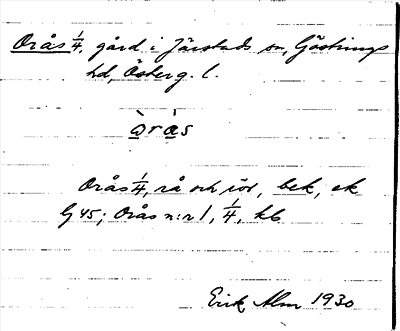 Orås 1/4, gård i Järstads sn, Göstrings
hd, Österg. l.
òràs
Orås 1/4, rå och rör, bek, ek
G 45; Orås n:r 1, 1/4, kb
Erik Alm 1930